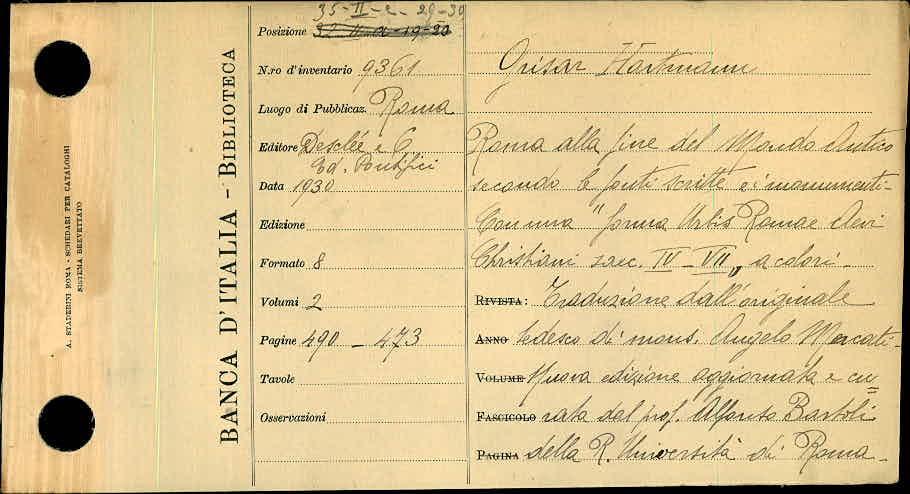 A. STADERINI ROMA - SCHEDARI PER CATALOGHI
SISTEMA BREVETTATO
BANCA D'ITALIA - BIBLIOTECA
35-II-c- 29-30
Posizione 32-II-a-19-20
N.ro d'inventario 9361
Luogo di Pubblicaz. Roma
Editore Desclée e C.
Ed. Pontifici
Data 1930
Edizione
Formato 8
Volumi 2
Pagine 490 - 473
Tavole
Osservazioni
Grisar Hartmann
Roma alla fine del Mondo Antico
secondo le fonti scritte e i monumenti-
Con una "forma Urbis Romae Aevi
Christiani saec. IV-VII" a colori-
RIVISTA: Traduzione dall'originale
ANNO tedesco di mons. Angelo Mercati-
VOLUME Nuova edizione aggiornata e cu=
FASCICOLO rata dal prof. Alfonso Bartoli
PAGINA della R. Università di Roma-